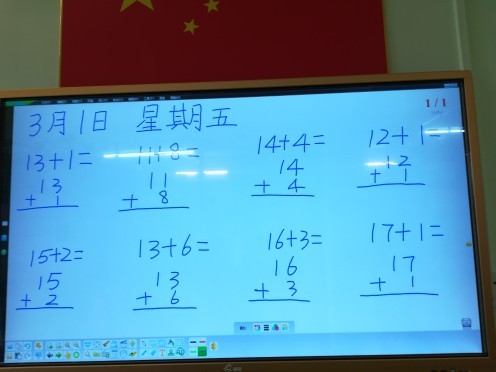 1/1
3月1日 星期五
13+1= 11+8= 14+4= 12+1=
13 11 14 12
+ 1 + 8 + 4 + 1
15+2= 13+6= 16+3= 17+1=
15 13 16 17
+ 2 + 6 + 3 + 1